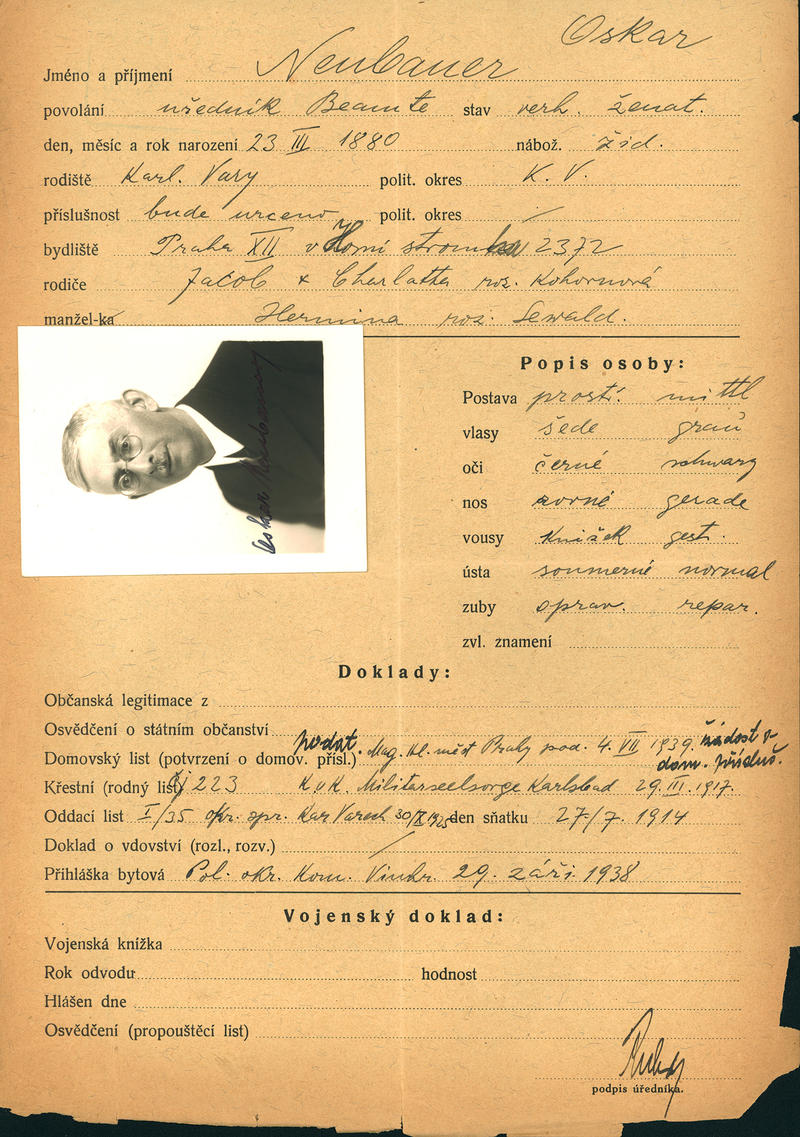 Jméno a příjmení Neubauer Oskar
povolání uředník Beamte stav verh. ženat.
den, měsíc a rok narození 23 III 1880 nábož. žid.
rodiště Karl. Vary polit. okres K. V.
příslušnost bude urceno polit. okres /
bydliště Praha XII v Horní stromka 2372
rodiče Jacob & Charlatta roz. Kohornová
manžel-ka Hermina roz. Sewald.
Oskar Neubauer
Popis osoby:
Postava prostř. mittl
vlasy šede grau
oči černé schwarz
nos rovné gerade
vousy knížek gest.
ústa soumerné normal
zuby oprav. repar.
zvl. znamení
Doklady:
Občanská legitimace z
Osvědčení o státním občanství
Domovský list (potvrzení o domov. přísl.) podat. Mag. hl. měst Prahy pod. 4. VII 1939. žádost o dom. přísluš.
Křestní (rodný list) čj 223 K u K. Militarseelsorge Karlsbad 29. III. 1917.
Oddací list I/35 okr. spr. Kar Varech 30/IX 1925 den sňatku 27./7. 1914
Doklad o vdovství (rozl., rozv.) /
Přihláška bytová Pol. okr. Kom. Vinhr. 29. září. 1938
Vojenský doklad:
Vojenská knížka
Rok odvodu hodnost
Hlášen dne
Osvědčení (propouštěcí list)
podpis úředníka.